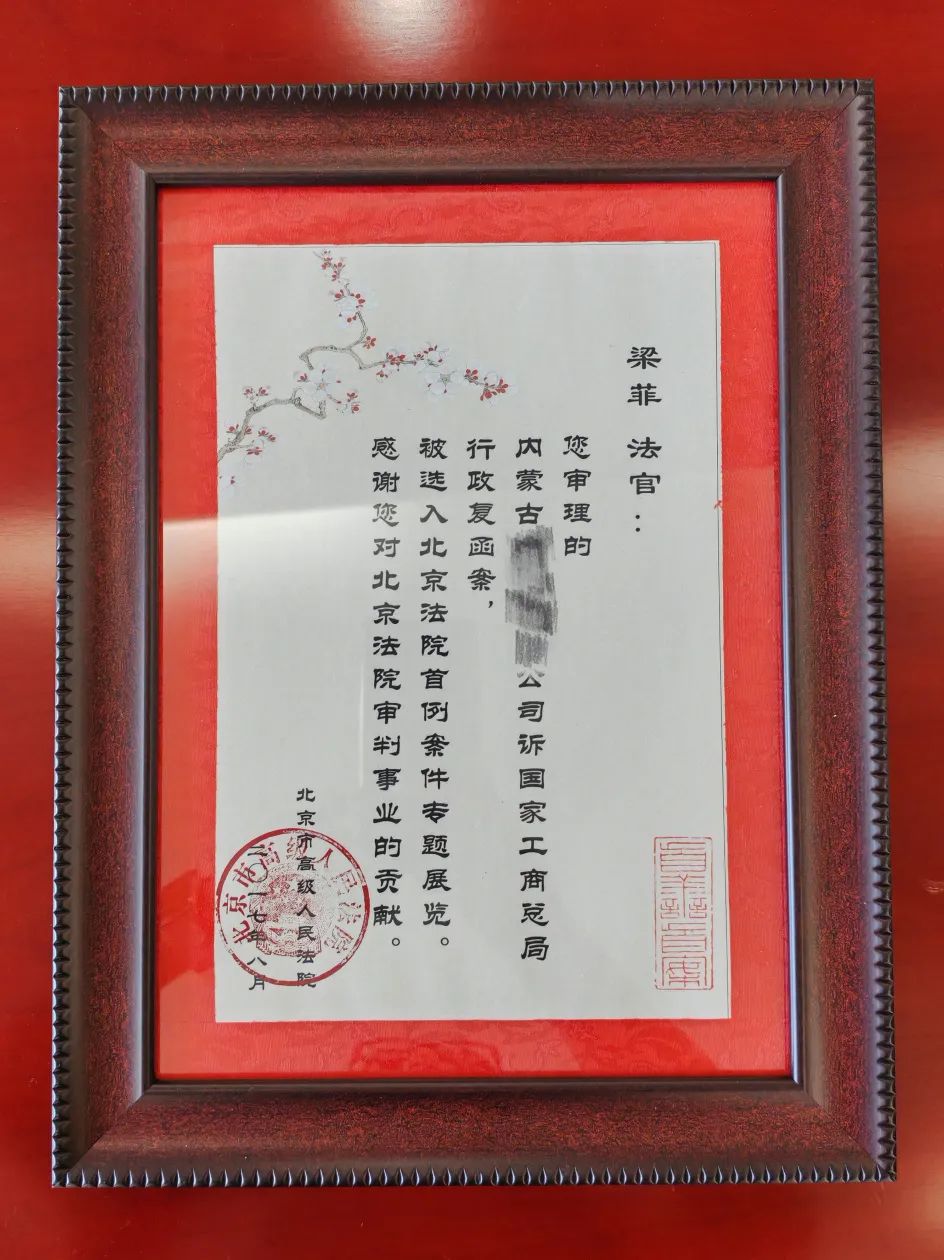 梁菲 法官：
您审理的
内蒙古
公司诉国家工商总局
行政复函案，
被选入北京法院首例案件专题展览。
感谢您对北京法院审判事业的贡献。
北京市高级人民法院
二〇一七年八月
北京市高级人民法院